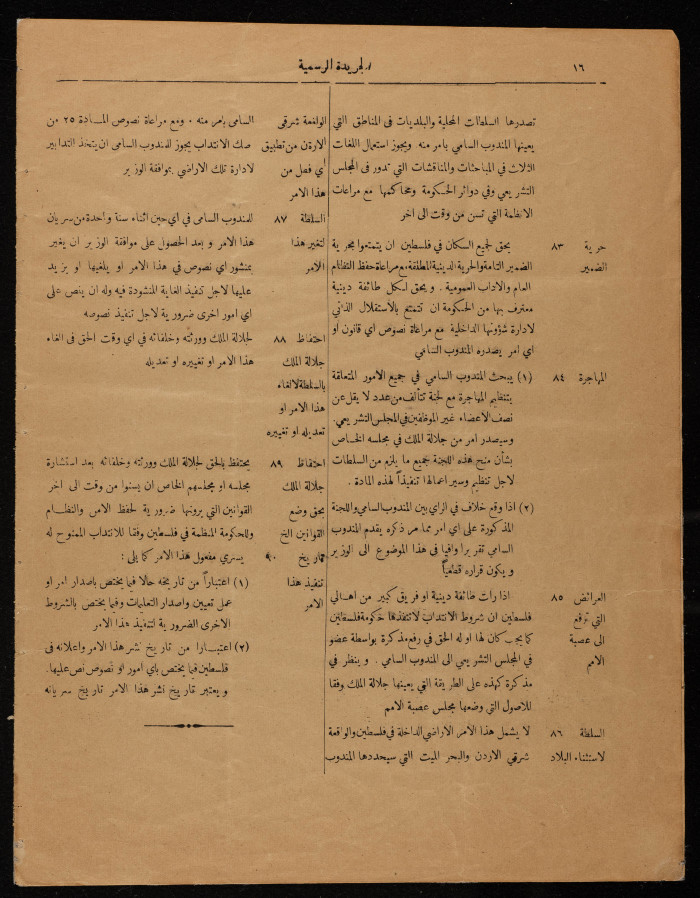 ١٦
الجريدة الرسمية
تصدرها السلطات المحلية والبلديات فى المناطق التي
يعينها المندوب السامي بأمر منه ويجوز استعمال اللغات
الثلاث في المباحثات والمناقشات التي تدور فى المجلس
التشريعي وفي دوائر الحكومة ومحاكمها مع مراعات
الانظمة التى تسن من وقت الى اخر
حرية ٨٣ يحق لجميع السكان في فلسطين ان يتمتعوا بحرية
الضمير الضمير التامة والحرية الدينية المطلقة مع مراعاة حفظ النظام
العام والاداب العمومية . ويحق لكل طائفة دينية
معترف بها من الحكومة ان تتمتع بالاستقلال الذاتي
لادارة شؤونها الداخلية مع مراعاة نصوص اي قانون او
اي امر يصدره المندوب السامي
المهاجرة ٨٤ (١) يبحث المندوب السامي في جميع الامور المتعلقة
بتنظيم المهاجرة مع لجنة تتألف من عدد لا يقل عن
نصف الاعضاء غير الموظفين في المجلس التشريعي.
وسيصدر امر من جلالة الملك في مجلسه الخاص
بشأن منح هذه اللجنة جميع ما يلزم من السلطات
لاجل تنظيم وسير اعمالها تنفيذاً لهذه المادة .
(٢) اذا وقع خلاف في الراي بين المندوب السامي واللجنة
المذكورة على اي امر مما مر ذكره يقدم المندوب
السامي تقريرا وافيا فى هذا الموضوع الى الوزير
ويكون قراره قطعياً
العرائض ٨٥ اذا رات طائفة دينية او فريق كبير من اهالي
التي ترفع فلسطين ان شروط الانتداب لا تنفذها حكومة فلسطين
الى عصبة كما يجب كان لها او له الحق في رفع مذكرة بواسطة عضو
الامم في المجلس التشريعي الى المندوب السامي . وينظر في
مذكرة كهذه على الطريقة التي يعينها جلالة الملك وفقا
للاصول التي وضعها مجلس عصبة الامم
السلطة ٨٦ لا يشمل هذا الامر الاراضي الداخلة في فلسطين والواقعة
لاستثناء البلاد شرقي الاردن والبحر الميت التي سيحددها المندوب
الواقعة شرقي السامى بامر منه . ومع مراعاة نصوص المادة ٢٥ من
الاردن من تطبيق صك الانتداب يجوز للمندوب السامى ان يتخذ التدابير
أي فصل من لادارة تلك الاراضي بموافقة الوزير
هذا الامر
السلطة ٨٧ للمندوب السامى في أي حين اثناء سنة واحدة من سريان
لتغيير هذا هذا الامر وبعد الحصول على موافقة الوزير ان يغير
الامر بمنشور اي نصوص في هذا الامر او يلغيها او يزيد
عليها لاجل تنفيذ الغاية المنشودة فيه وله ان ينص على
اي امور اخرى ضرورية لاجل تنفيذ نصوصه
احتفاظ ٨٨ لجلالة الملك وورثته وخلفائه في اي وقت الحق فى الغاء
جلالة الملك هذا الامر او تغييره او تعديله
بالسلطة لالغاء
هذا الامر او
تعديله او تغييره
احتفاظ ٨٩ يحتفظ بالحق لجلالة الملك وورثته وخلفائه بعد استشارة
جلالة الملك مجلسه او مجلسهم الخاص ان يسنوا من وقت الى اخر
بحق وضع القوانين التي يرونها ضرورية لحفظ الامن والنظام
القوانين الخ وللحكومة المنظمة في فلسطين وفقا للانتداب الممنوح له
تاريخ ٩٠ يسري مفعول هذا الامر كما يلي :
تنفيذ هذا (١) اعتباراً من تاريخه حالا فيما يختص باصدار امر او
الامر عمل تعيين واصدار التعليمات وفيما يختص بالشروط
الاخرى الضرورية لتنفيذ هذا الامر
(٢) اعتبارا من تاريخ نشر هذا الامر واعلانه فى
فلسطين فيما يختص باي امور او نصوص نص عليها.
ويعتبر تاريخ نشر هذا الامر تاريخ سريانه